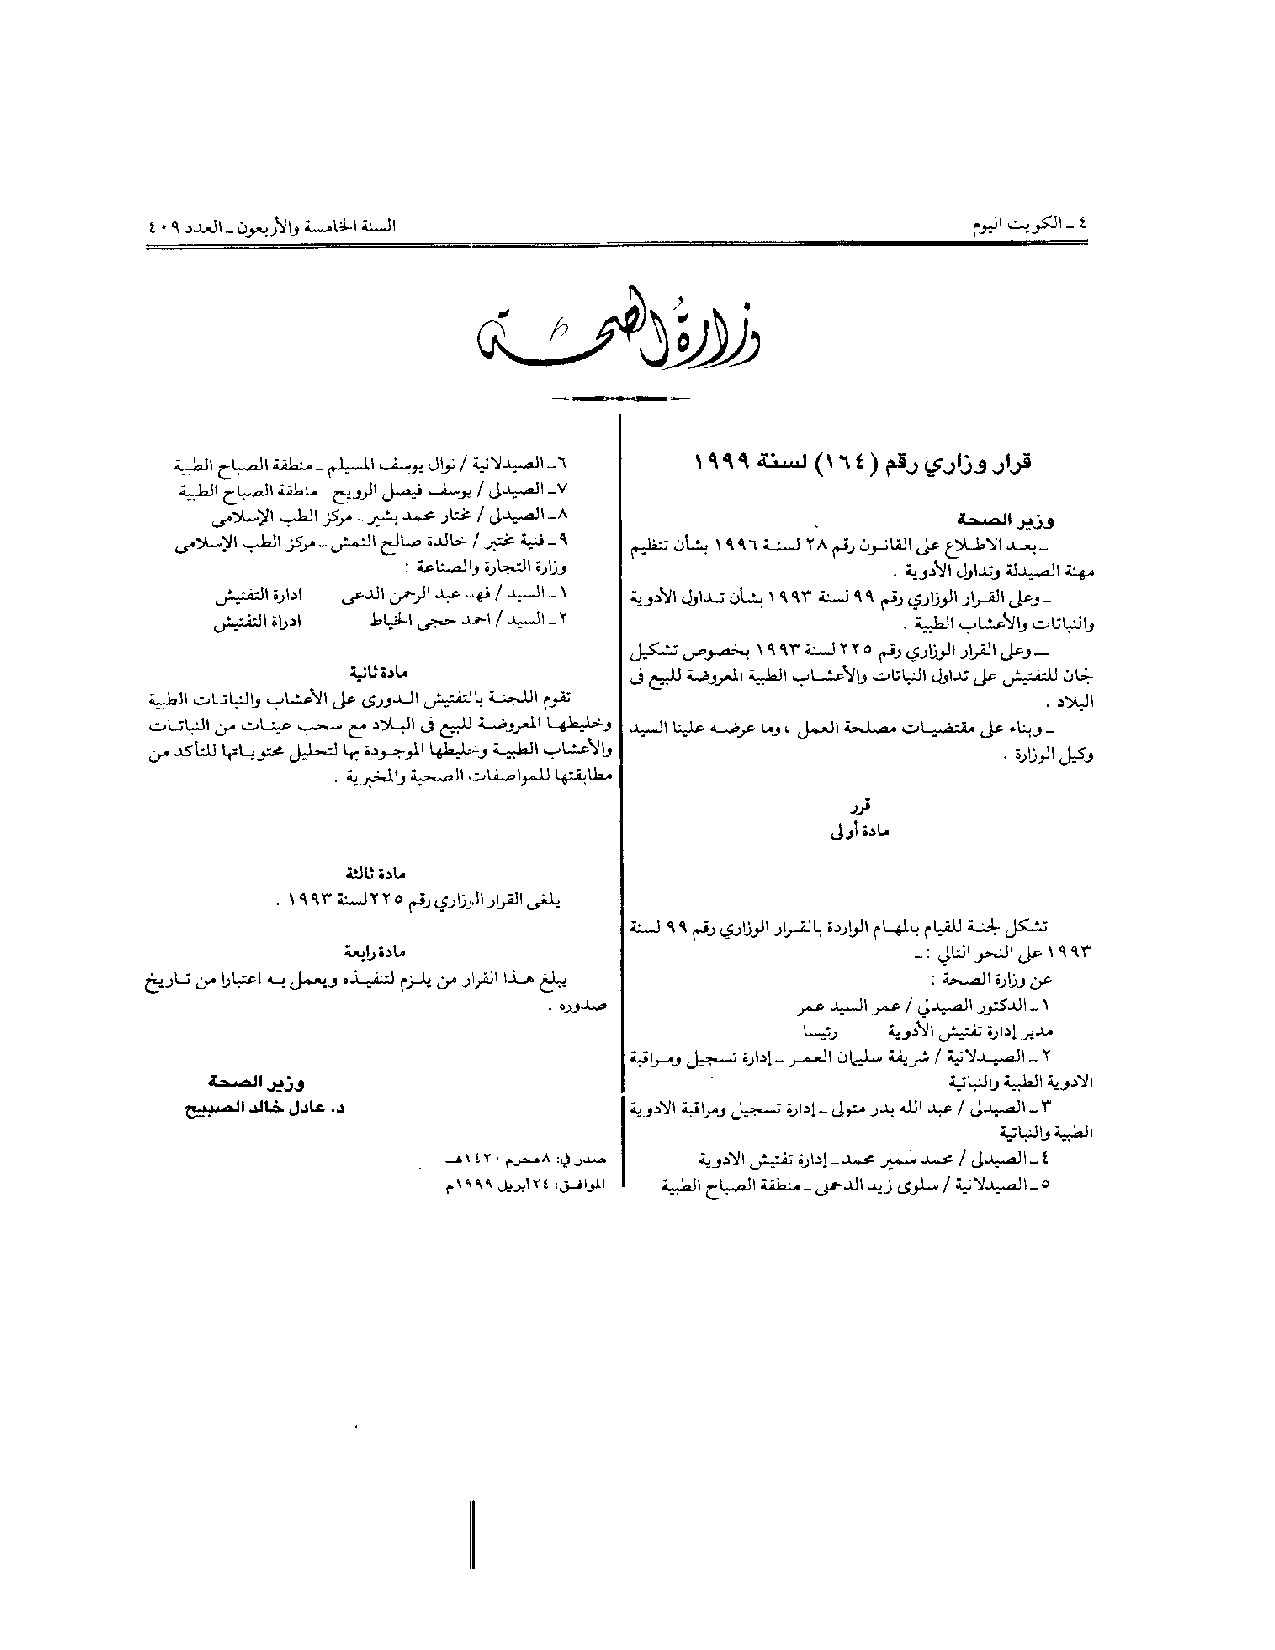 ٤ ـ الكويت اليوم
السنة الخامسة والأربعون ـ العدد ٤٠٩
وزارة الصحة
قرار وزاري رقم (١٦٤) لسنة ١٩٩٩
وزير الصحة
ـ بعد الاطلاع على القانون رقم ٢٨ لسنة ١٩٩٦ بشأن تنظيم
مهنة الصيدلة وتداول الأدوية .
ـ وعلى القرار الوزاري رقم ٩٩ لسنة ١٩٩٣ بشأن تداول الأدوية
والنباتات والأعشاب الطبية .
ـ وعلى القرار الوزاري رقم ٢٢٥ لسنة ١٩٩٣ بخصوص تشكيل
لجان للتفتيش على تداول النباتات والأعشاب الطبية المعروضة للبيع في
البلاد .
ـ وبناء على مقتضيات مصلحة العمل ، وما عرضه علينا السيد
وكيل الوزارة .
قرر
مادة أولى
تشكل لجنة للقيام بالمهام الواردة بالقرار الوزاري رقم ٩٩ لسنة
١٩٩٣ على النحو التالي : ـ
عن وزارة الصحة :
١ ـ الدكتور الصيدلي / عمر السيد عمر
مدير إدارة تفتيش الأدوية رئيسا
٢ ـ الصيدلانية / شريفة سليمان العمر ـ إدارة تسجيل ومراقبة
الادوية الطبية والنباتية
٣ ـ الصيدلى / عبد الله بدر متولى ـ إدارة تسجيل ومراقبة الادوية
الطبية والنباتية
٤ ـ الصيدلى / محمد سمير محمد ـ إدارة تفتيش الادوية
٥ ـ الصيدلانية / سلوى زيد الدحمى ـ منطقة الصباح الطبية
٦ ـ الصيدلانية / نوال يوسف المسيلم ـ منطقة الصباح الطبية
٧ ـ الصيدلى / يوسف فيصل الرويح منطقة الصباح الطبية
٨ ـ الصيدلى / مختار محمد بشير ـ مركز الطب الإسلامى
٩ ـ فنية مختبر / خالدة صالح الثمش ـ مركز الطب الإسلامى
وزارة التجارة والصناعة :
١ ـ السيد / فهد عبد الرحمن الدعى ادارة التفتيش
٢ ـ السيد / احمد حجى الخياط ادراة التفتيش
مادة ثانية
تقوم اللجنة بالتفتيش الدورى على الأعشاب والنباتات الطبية
وخليطها المعروضة للبيع في البلاد مع سحب عينات من النباتات
والأعشاب الطبية وخليطها الموجودة بها لتحليل محتوياتها للتأكد من
مطابقتها للمواصفات الصحية والمخبرية .
مادة ثالثة
يلغى القرار الوزاري رقم ٢٢٥ لسنة ١٩٩٣ .
مادة رابعة
يبلغ هذا القرار من يلزم لتنفيذه ويعمل به اعتبارا من تاريخ
صدوره .
وزير الصحة
د. عادل خالد الصبيح
صدر في: ٨ محرم ١٤٢٠هـ
الموافق: ٢٤ ابريل ١٩٩٩م